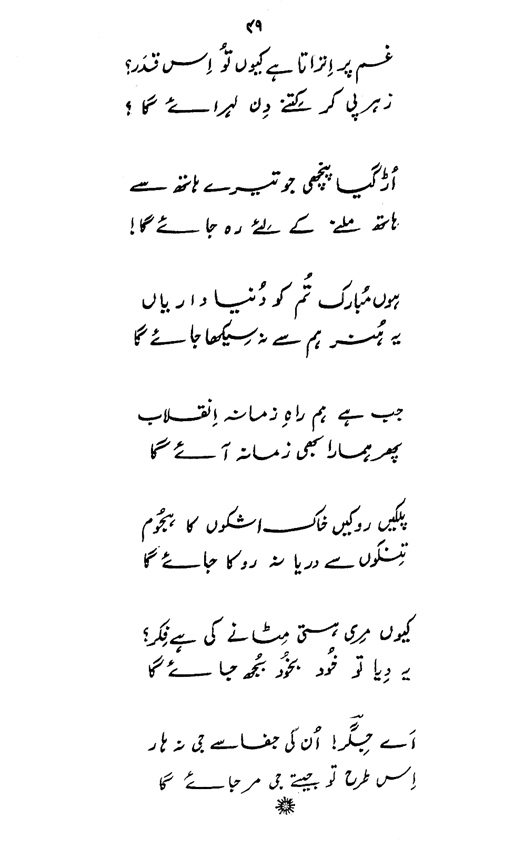 ۴۹
غم پر اِتراتا ہے کیوں تُو اِس قدَر؟
زہر پی کر کِتنے دِن لہرائے گا ؟
اُڑ گیا پنچھی جو تیرے ہاتھ سے
ہاتھ ملنے کے لئے رہ جائے گا!
ہوں مُبارک تُم کو دُنیا داریاں
یہ ہُنر ہم سے نہ سِیکھا جائے گا
جب ہے ہم راہِ زمانہ اِنقلاب
پھر ہمارا بھی زمانہ آئے گا
پلکیں روکیں خاک اشکوں کا ہجُوم
تِنکوں سے دریا نہ روکا جائے گا
کیوں مِری ہستی مِٹانے کی ہے فِکر؟
یہ دِیا تو خُود بخُود بُجھ جائے گا
اَے جِگرؔ! اُن کی جفا سے جی نہ ہار
اِس طرح تو جیتے جی مر جائے گا